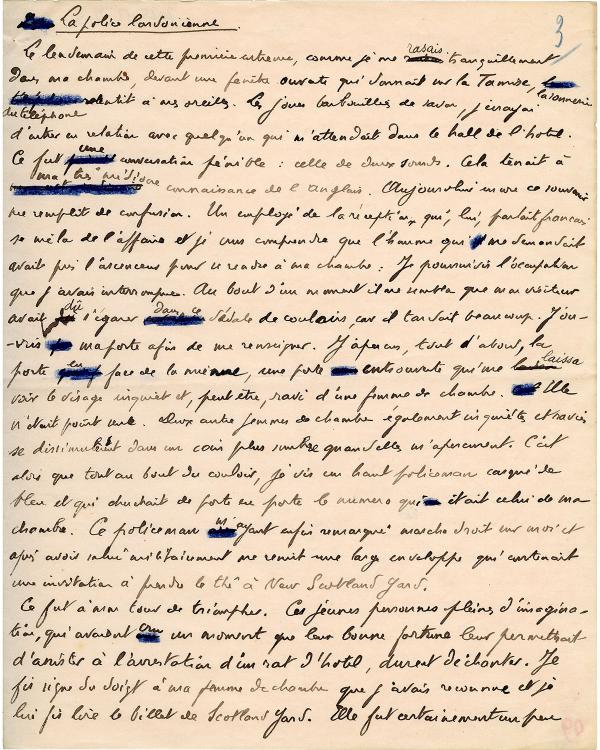 La police londonienne.
3
Le lendemain de cette première entrevue, comme je me rasais tranquillement
dans ma chambre, devant une fenêtre ouverte qui donnait sur la Tamise, la sonnerie
du téléphone retentit à mes oreilles. Les joues barbouillées de savon, j'essayai
d'entrer en relation avec quelqu'un qui m'attendait dans le hall de l'hôtel.
Ce fut une conversation pénible : celle de deux sourds. Cela tenait à
ma très médiocre connaissance de l'anglais. Aujourd'hui encore ce souvenir
me remplit de confusion. Un employé de la réception, qui, lui, parlait français
se mêla de l'affaire et je crus comprendre que l'homme qui me demandait
avait pris l'ascenseur pour se rendre à ma chambre. Je poursuivis l'occupation
que j'avais interrompue. Au bout d'un moment il me sembla que mon visiteur
avait dû s'égarer dans ce dédale de couloirs, car il tardait beaucoup. J'ou-
-vris ma porte afin de me renseigner. J'aperçus, tout d'abord, la
porte en face de la mienne, une porte entrouverte qui me laissa
voir le visage inquiet et, peut-être, ravi d'une femme de chambre. Elle
n'était point seule. Deux autres femmes de chambre également inquiètes et ravies
se dissimulèrent dans un coin plus sombre quand elles m'aperçurent. C'est
alors que tout au bout du couloir, je vis un haut policeman casqué de
bleu et qui cherchait de porte en porte le numéro qui était celui de ma
chambre. Ce policeman m'ayant enfin remarqué marcha droit sur moi et
après avoir salué militairement me remit une large enveloppe qui contenait
une invitation à prendre le thé à New Scotland Yard.
Ce fut à mon tour de triompher. Ces jeunes personnes pleines d'imagina-
tion, qui avaient cru un moment que leur bonne fortune leur permettrait
d'assister à l'arrestation d'un rat d'hôtel, durent déchanter. Je
fis signe du doigt à ma femme de chambre que j'avais reconnue et je
lui fis lire le billet de Scotland Yard. Elle fut certainement un peu